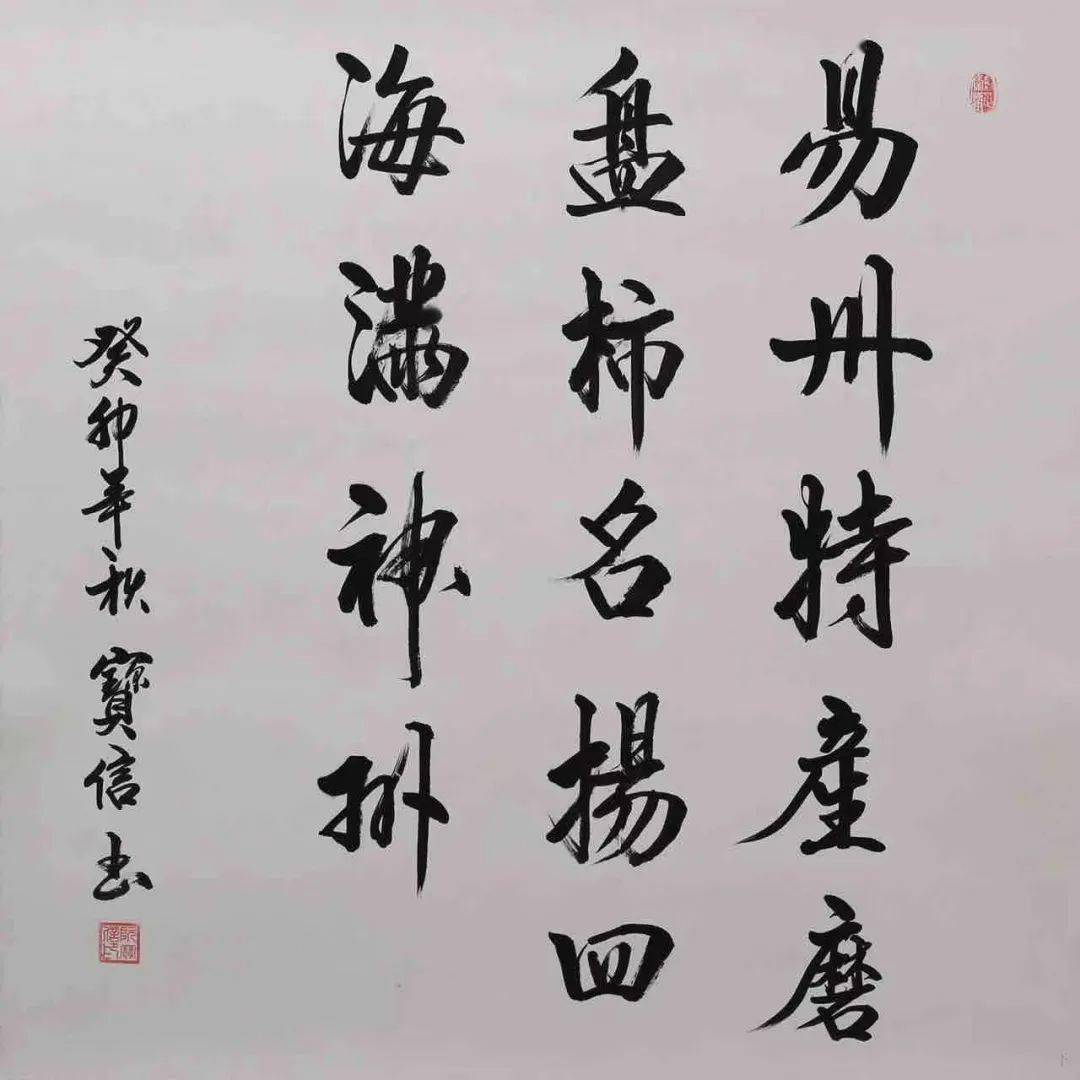 易州特産磨
盘柿名揚四
海满神州
癸卯年秋 寶信书